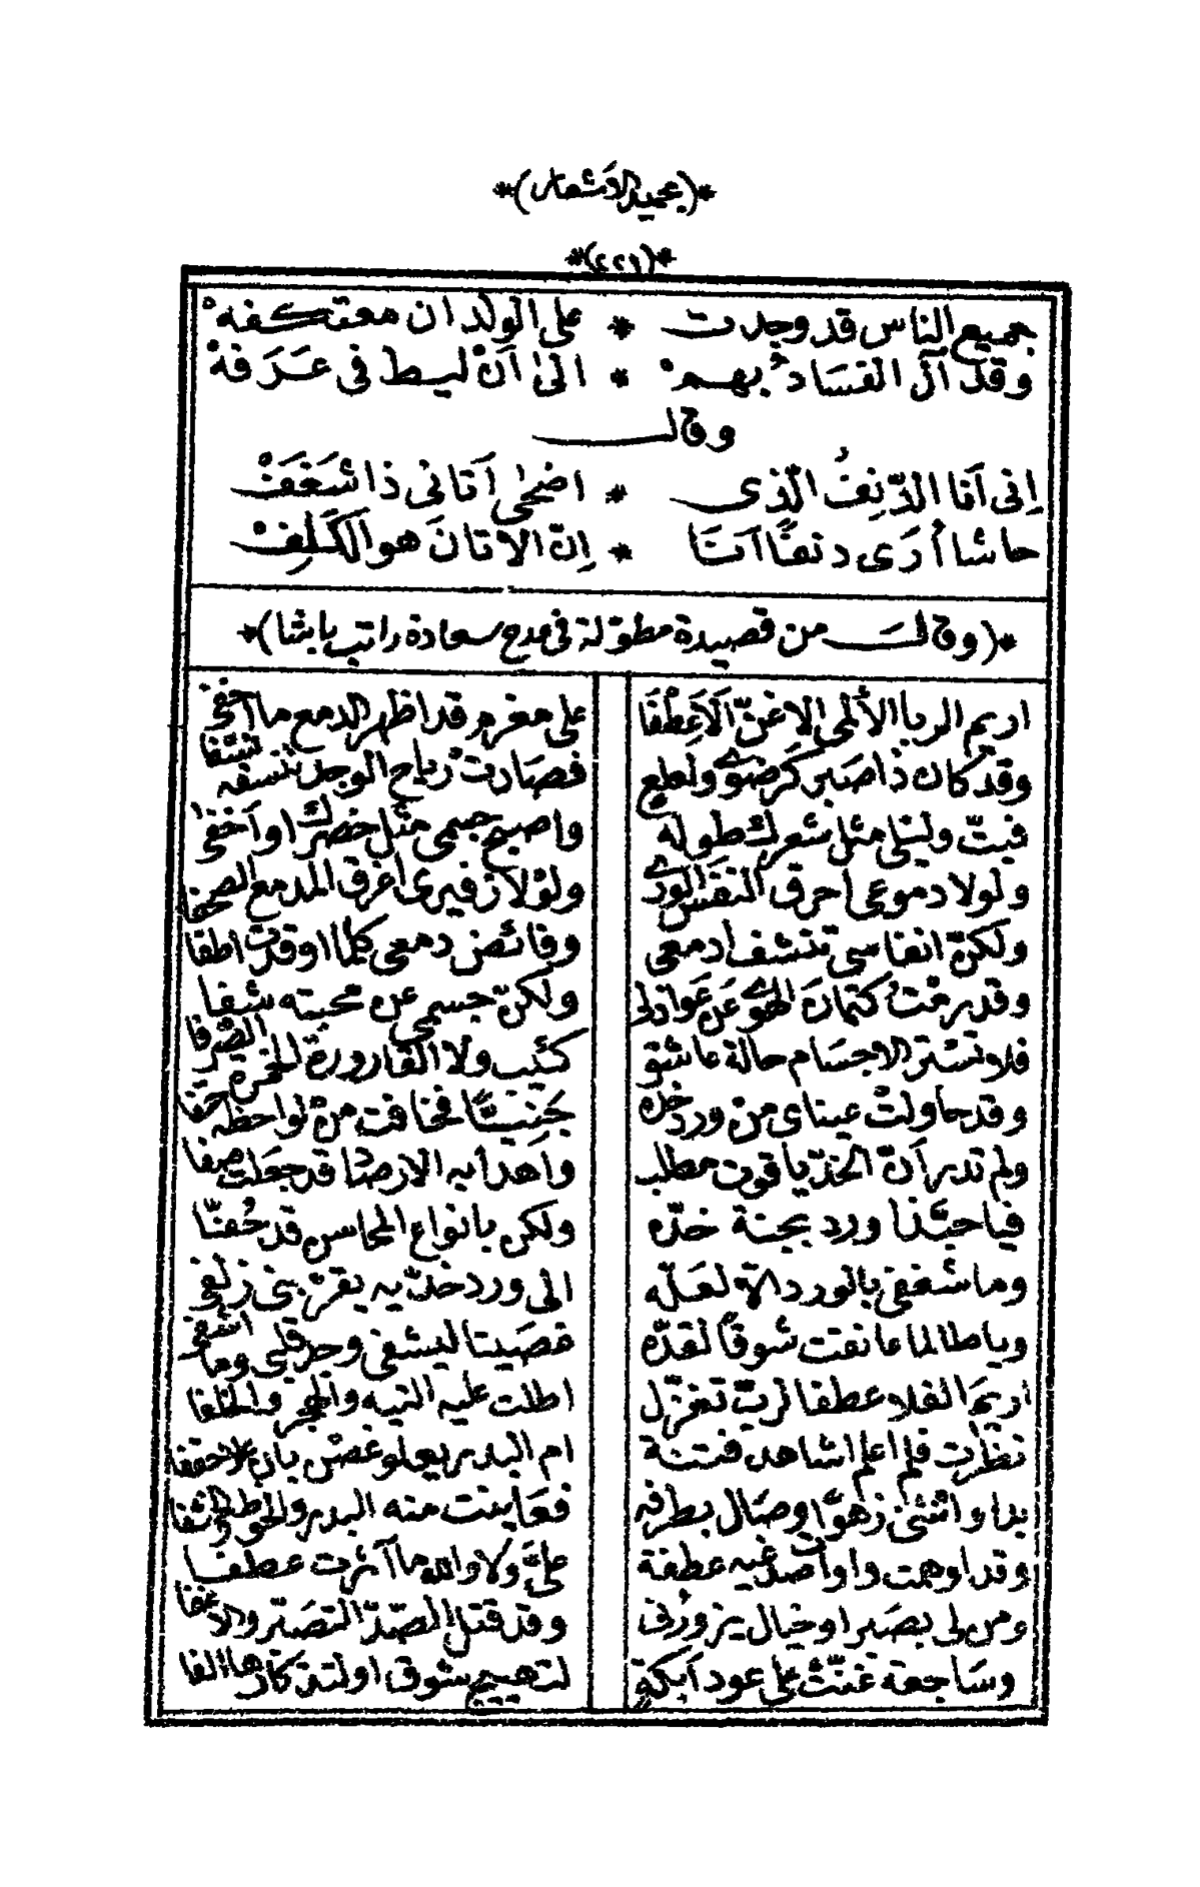 *(بحميد الاشعار)*
*(٢٢١)*
جميع الناس قد وجدت * على الولدان معتكفه
وقد آل الفساد بهم * الى اَن ليط فى عَرَفة
وقال
اِنى اَنا الدّنِفُ الّذى * اضحى اَتانى ذا شَغَفْ
حاشا أرَى دنفًا اَنَا * اِنّ الاتانَ هو الكَلِفْ
*(وقال من قصيدة مطوّلة فى مدح سعادة راتب باشا)*
اريم الربا الألمى الاغنّ اَلَا عَطْفَا * على مغرم قد اظهر الدمع ما اخفى
وقد كان ذا صبر كرضوى ولعلع * فصادت رياح الوجد تنسفه نسفا
فبتّ وليلى مثل شعرك طوله * واصبح جسمى مثل خصرك او اَخفى
ولولا دموعى احرق النفَس الورى * ولوْلا زفيرى اغرق المدمع الصحفا
ولكنّ انفاسى تنشف ادمعى * وفائض دمعى كلما اوقدت اطفا
وقد رمْت كتمان الهوى عَن عَواذلى * ولكنّ جسمى عن محبته شفا
فلا تستر الاجسام حالة عاشق * كئيب ولا القارورة الخمرة الصرفا
وقد حاولتْ عيناى منْ ورد خدّه * جَنِيًّا فخافت منْ لواحظه حتفا
ولم تدر اَنّ الخدّ ياقوت مطلب * واهدابه الارصاد قد جعلت صفا
فيا حبَّذا ورد بجنة خدّه * ولكن بانواع المحاسن قد حُفنّا
وما شغفى بالورد الا لعلّه * الى ورد خدّيه يقرّبنى زلفى
ويا طالما عانقت شوقًا لقدّه * قضيبا ليشفى وجد قلبى وما اشفى
اريم الفلا عطفا لربّ تغزّل * اطلت عليه التيه والهجر والخلفا
نظرت فلم اعلم اشاهد فتنة * ام البدر يعلو غصن بان علا حقفا
بدا وانثنى زهوًا وصال بطرفه * فعاينت منه البدر والخوط والخشفا
وقد اوهمت واوات صدغيه عطفة * علىَّ ولا والله ما آثرت عطفا
ومن لى بصبر او خيال يزورُنى * وقد قتل الصّدّ التصبّر والاغفا
وسَاجعة غنتْ على عود اَيكة * لتهييج شوق او لتذكارها الفا